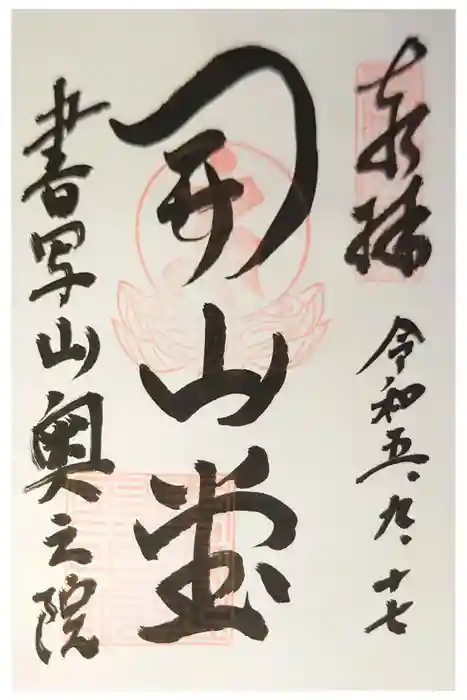 奉拝
令和五、九、十七
開山堂
書写山奥之院